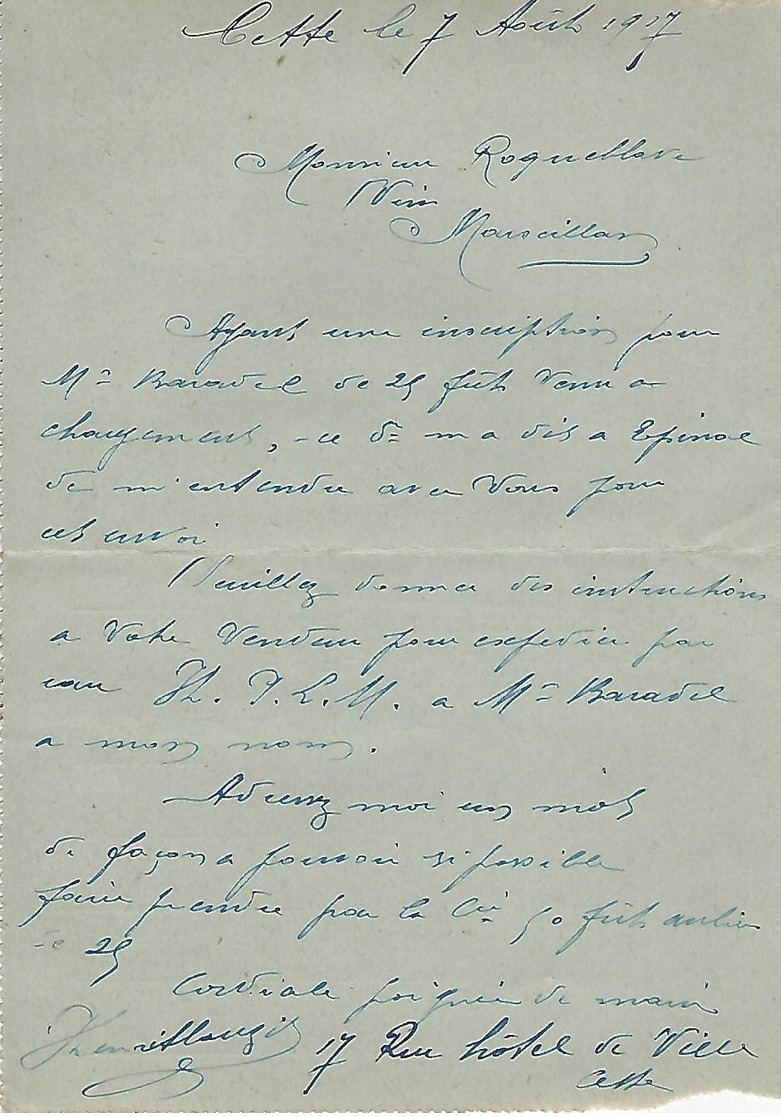 Cette le 7 Août 1917
Monsieur Roqueblave
Vins
Marseillan
Ayant une inscription pour
Mr Baradel de 25 fûts Venu a
chargement, ce dr m a dit a Epinal
de m'entendre avec Vous pour
cet envoi
Veuillez donner des instructions
a Votre Vendeur pour expedier par
eau P.L.M. a Mr Baradel
a mon nom.
Adressez moi un mot
de façon a pouvoir si possible
faire prendre par la Cie 50 fûts au lieu
de 25
Cordiale poignée de main
17 Rue hôtel de Ville
Cette